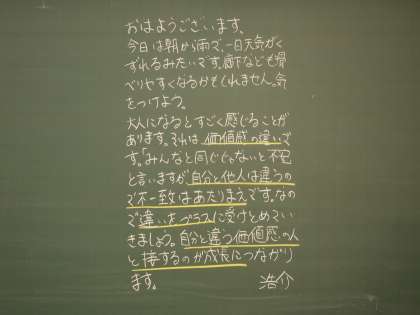 おはようございます。
今日は朝から雨で、一日天気がく
ずれるみたいです。廊下なども滑
べりやすくなるかもしれません。気
をつけよう。
大人になるとすごく感じることが
あります。それは価値感の違いで
す。「みんなと同じじゃないと不安
と言いますが自分と他人は違うの
で不一致はあたりまえです。なの
で違いをプラスに受けとめてい
きましょう。自分と違う価値感の人
と接するのが成長につながり
ます。 浩介